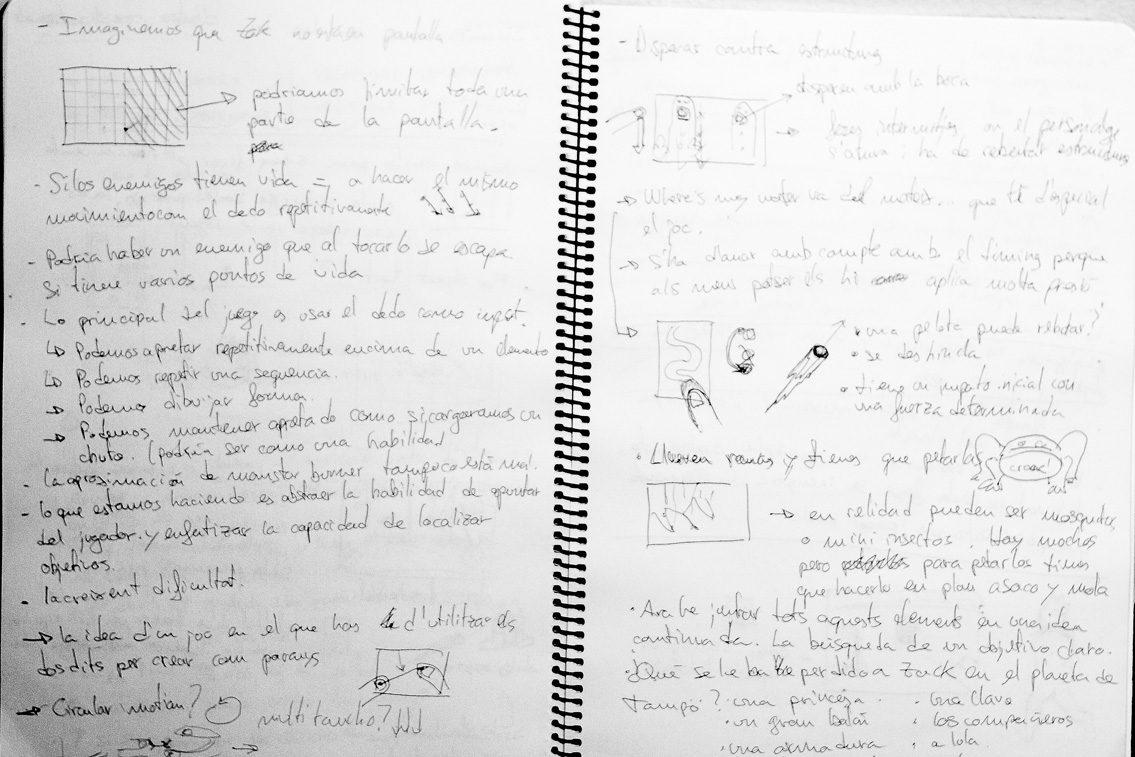 - Imaginemos que Zak no está en pantalla
podríamos limitar toda una
parte de la pantalla.
- Si los enemigos tienen vida => a hacer el mismo
movimiento con el dedo repetitivamente
- Podria haber un enemigo que al tocarlo se escapa
si tiene varios puntos de vida
- Lo principal del juego es usar el dedo como input.
↳ Podemos apretar repetitivamente encima de un elemento
↳ Podemos repetir una sequencia.
→ Podemos dibujar forma.
→ Podemos mantener apretado como si cargaramos un
chute. (podría ser como una habilidad
- La aproximación de monster burner tampoco está mal.
- lo que estamos haciendo es abstraer la habilidad de apuntar
del jugador y enfatizar la capacidad de localizar
objetivos.
- la creixent dificultat.
→ la idea d'un joc en el que has d'utilitzar els
dos dits per crear com paranys
→ Circular motion?
multitoucho?
- Disparar contra estructuras
disparen amb la boca
→ fases intermitges on el personatge
s'atura i ha de rebentar estructures
→ Where's my water va del mateix... que té d'especial
el joc.
→ S'ha d'anar amb compte amb el timing perque
als meus poders els hi aplica molta pressió
• una pelota puede rebotar?
• se deshincha
• tiene un impulso inicial con
una fuerza determinada
• Llueven ranas y tienes que petarlas
croac!
→ en relidad pueden ser mosquitos
o mini insectos. Hay muchos
pero para petarlos tienes
que hacerlo en plan asaco y mola
• Ara he juntar tots aquests elements en una idea
continuada. La búsqueda de un objetivo claro.
• ¿Qué se le ha perdido a Zack en el planeta de
Tampó? • una princesa • una clave
• un gran balón • los compañeros
• una armadura • a lola.